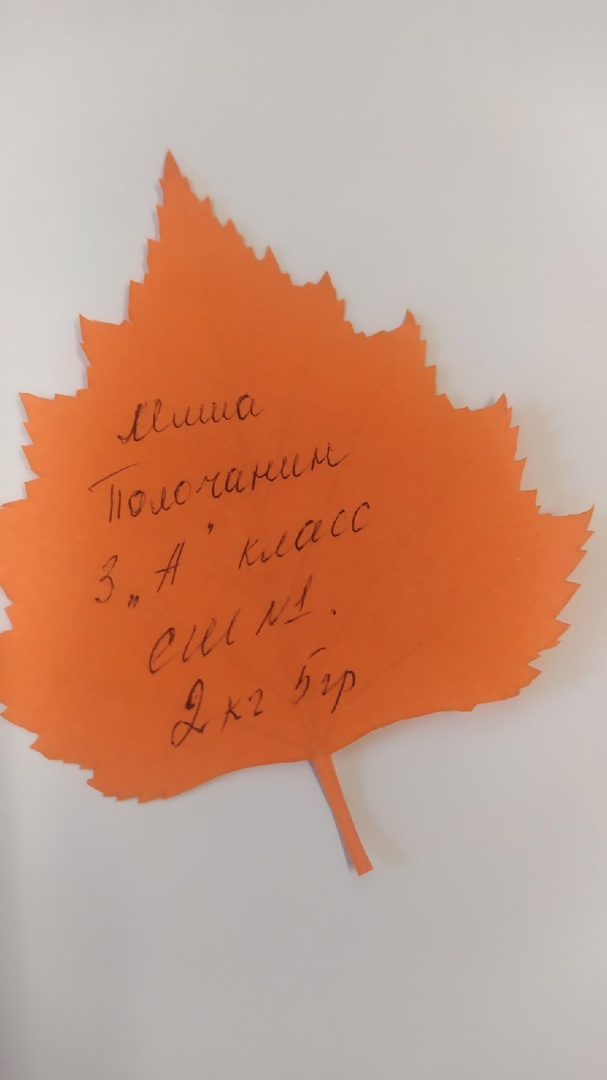 Миша
Полочанин
3 „А" класс
СШ №1.
2 кг 5 гр